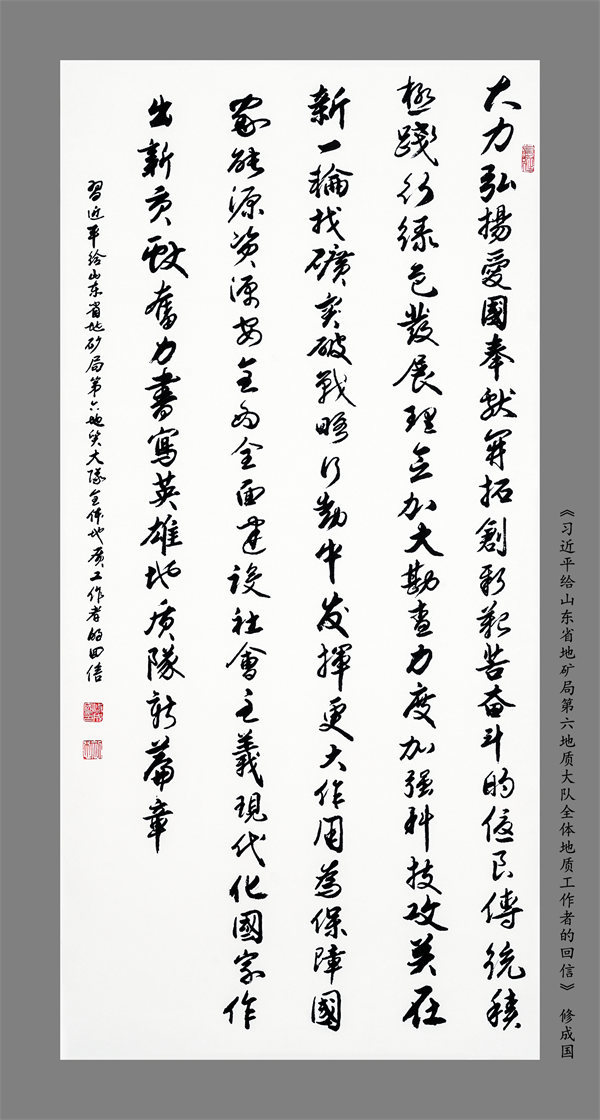 大力弘揚愛國奉献開拓創新艱苦奋斗的優良傳統積
極踐行绿色發展理念加大勘查力度加强科技攻关在
新一輪找礦突破戰略行動中发揮更大作用為保障國
家能源资源安全为全面建设社會主義現代化國家作
出新贡獻奮力書寫英雄地质隊新篇章
習近平给山东省地矿局第六地质大隊全体地质工作者的回信
《习近平给山东省地矿局第六地质大队全体地质工作者的回信》 修成国